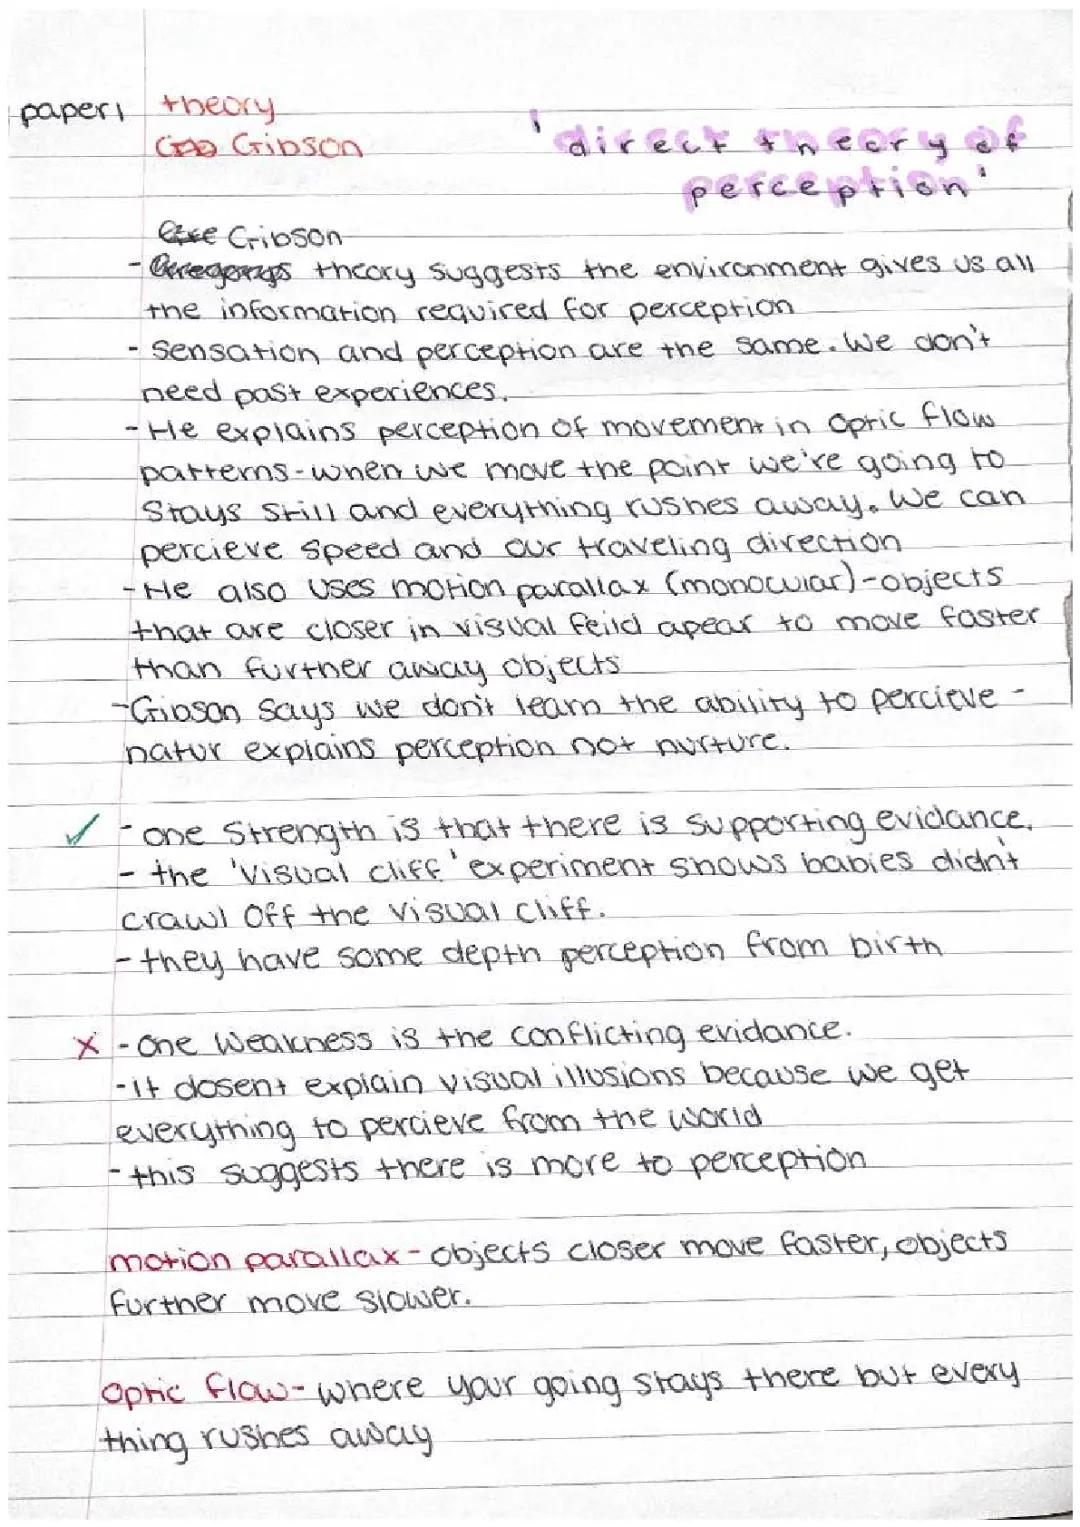 paper 1 theory
Gibson
'direct theory of
perception'
Gibson
- theory suggests the environment gives us all
the information required for perception
- Sensation and perception are the same. We don't
need past experiences.
- He explains perception of movement in optic flow
patterns - when we move the point we're going to
stays still and everything rushes away. We can
percieve speed and our traveling direction
- He also uses motion parallax (monocular) - objects
that are closer in visual feild apear to move faster
than further away objects
- Gibson says we don't learn the ability to percieve -
natur explains perception not nurture.
✓ - one strength is that there is supporting evidance.
- the 'visual cliff' experiment shows babies didn't
crawl off the visual cliff.
- they have some depth perception from birth
x - one weakness is the conflicting evidance.
- it dosent explain visual illusions because we get
everything to percieve from the world
- this suggests there is more to perception
motion parallax - objects closer move faster, objects
further move slower.
optic flow - where your going stays there but every
thing rushes away